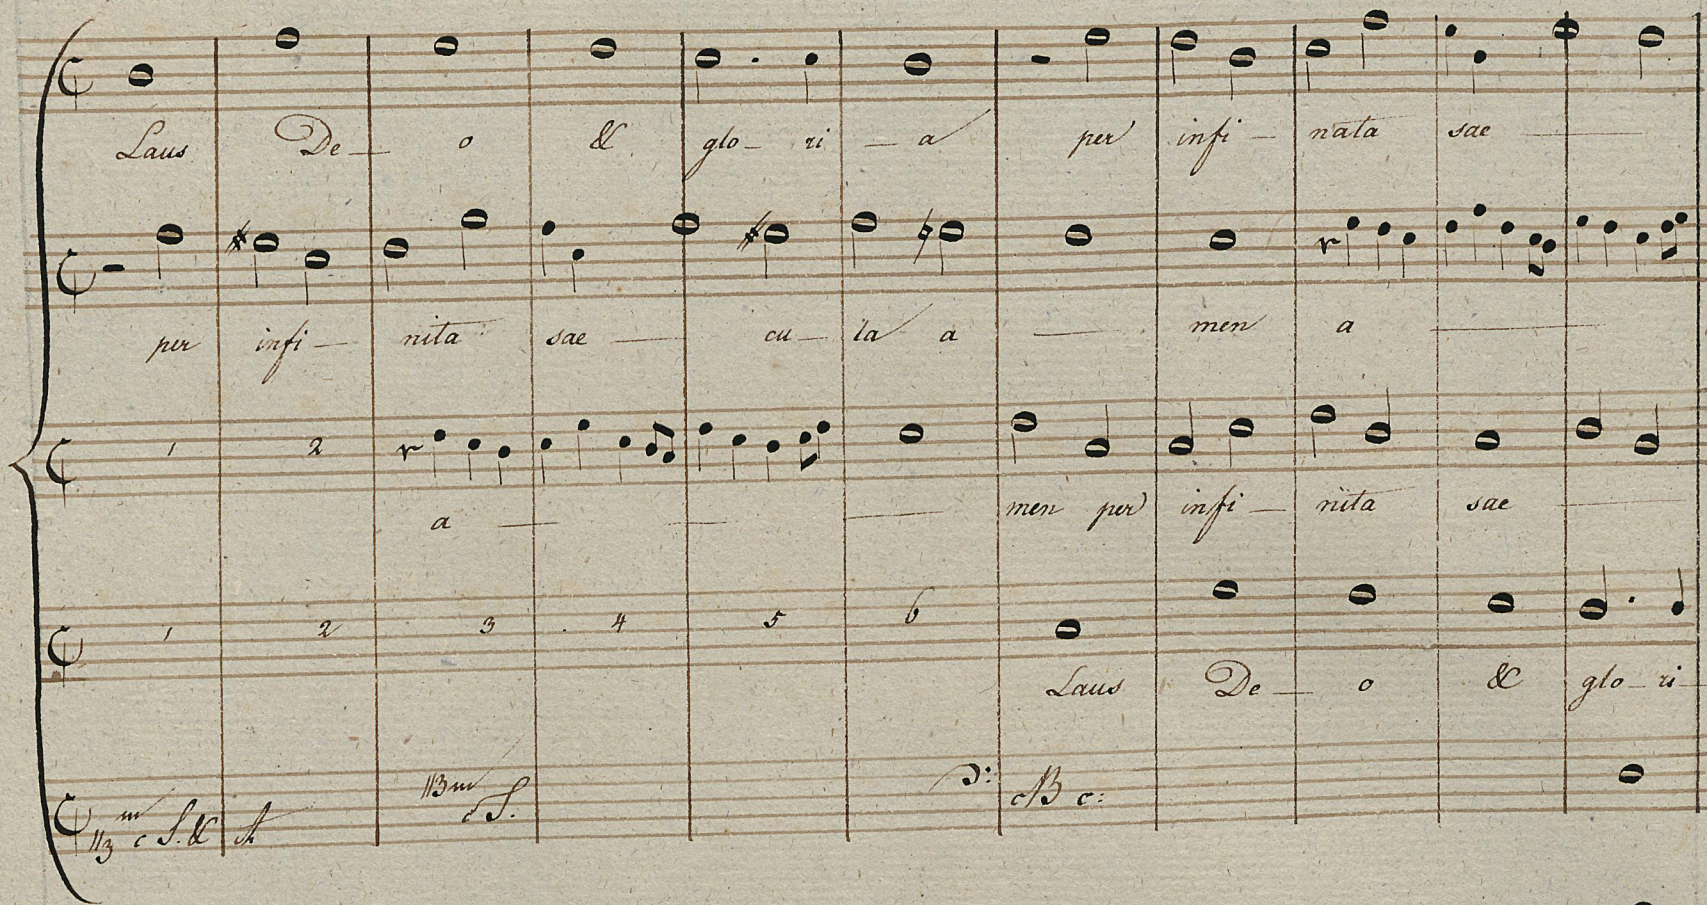 Laus De — o & glo — ri — a per infi — nata sae —
per infi — nita sae — cu — la a — men a —
1 2
a — men per infi — nita sae —
1 2 3 4 5 6
Laus De — o & glo — ri —
c S. & A c S. c B c: